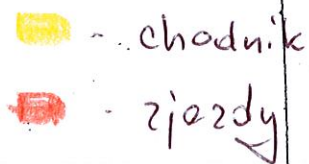 - chodnik
- zjazdy